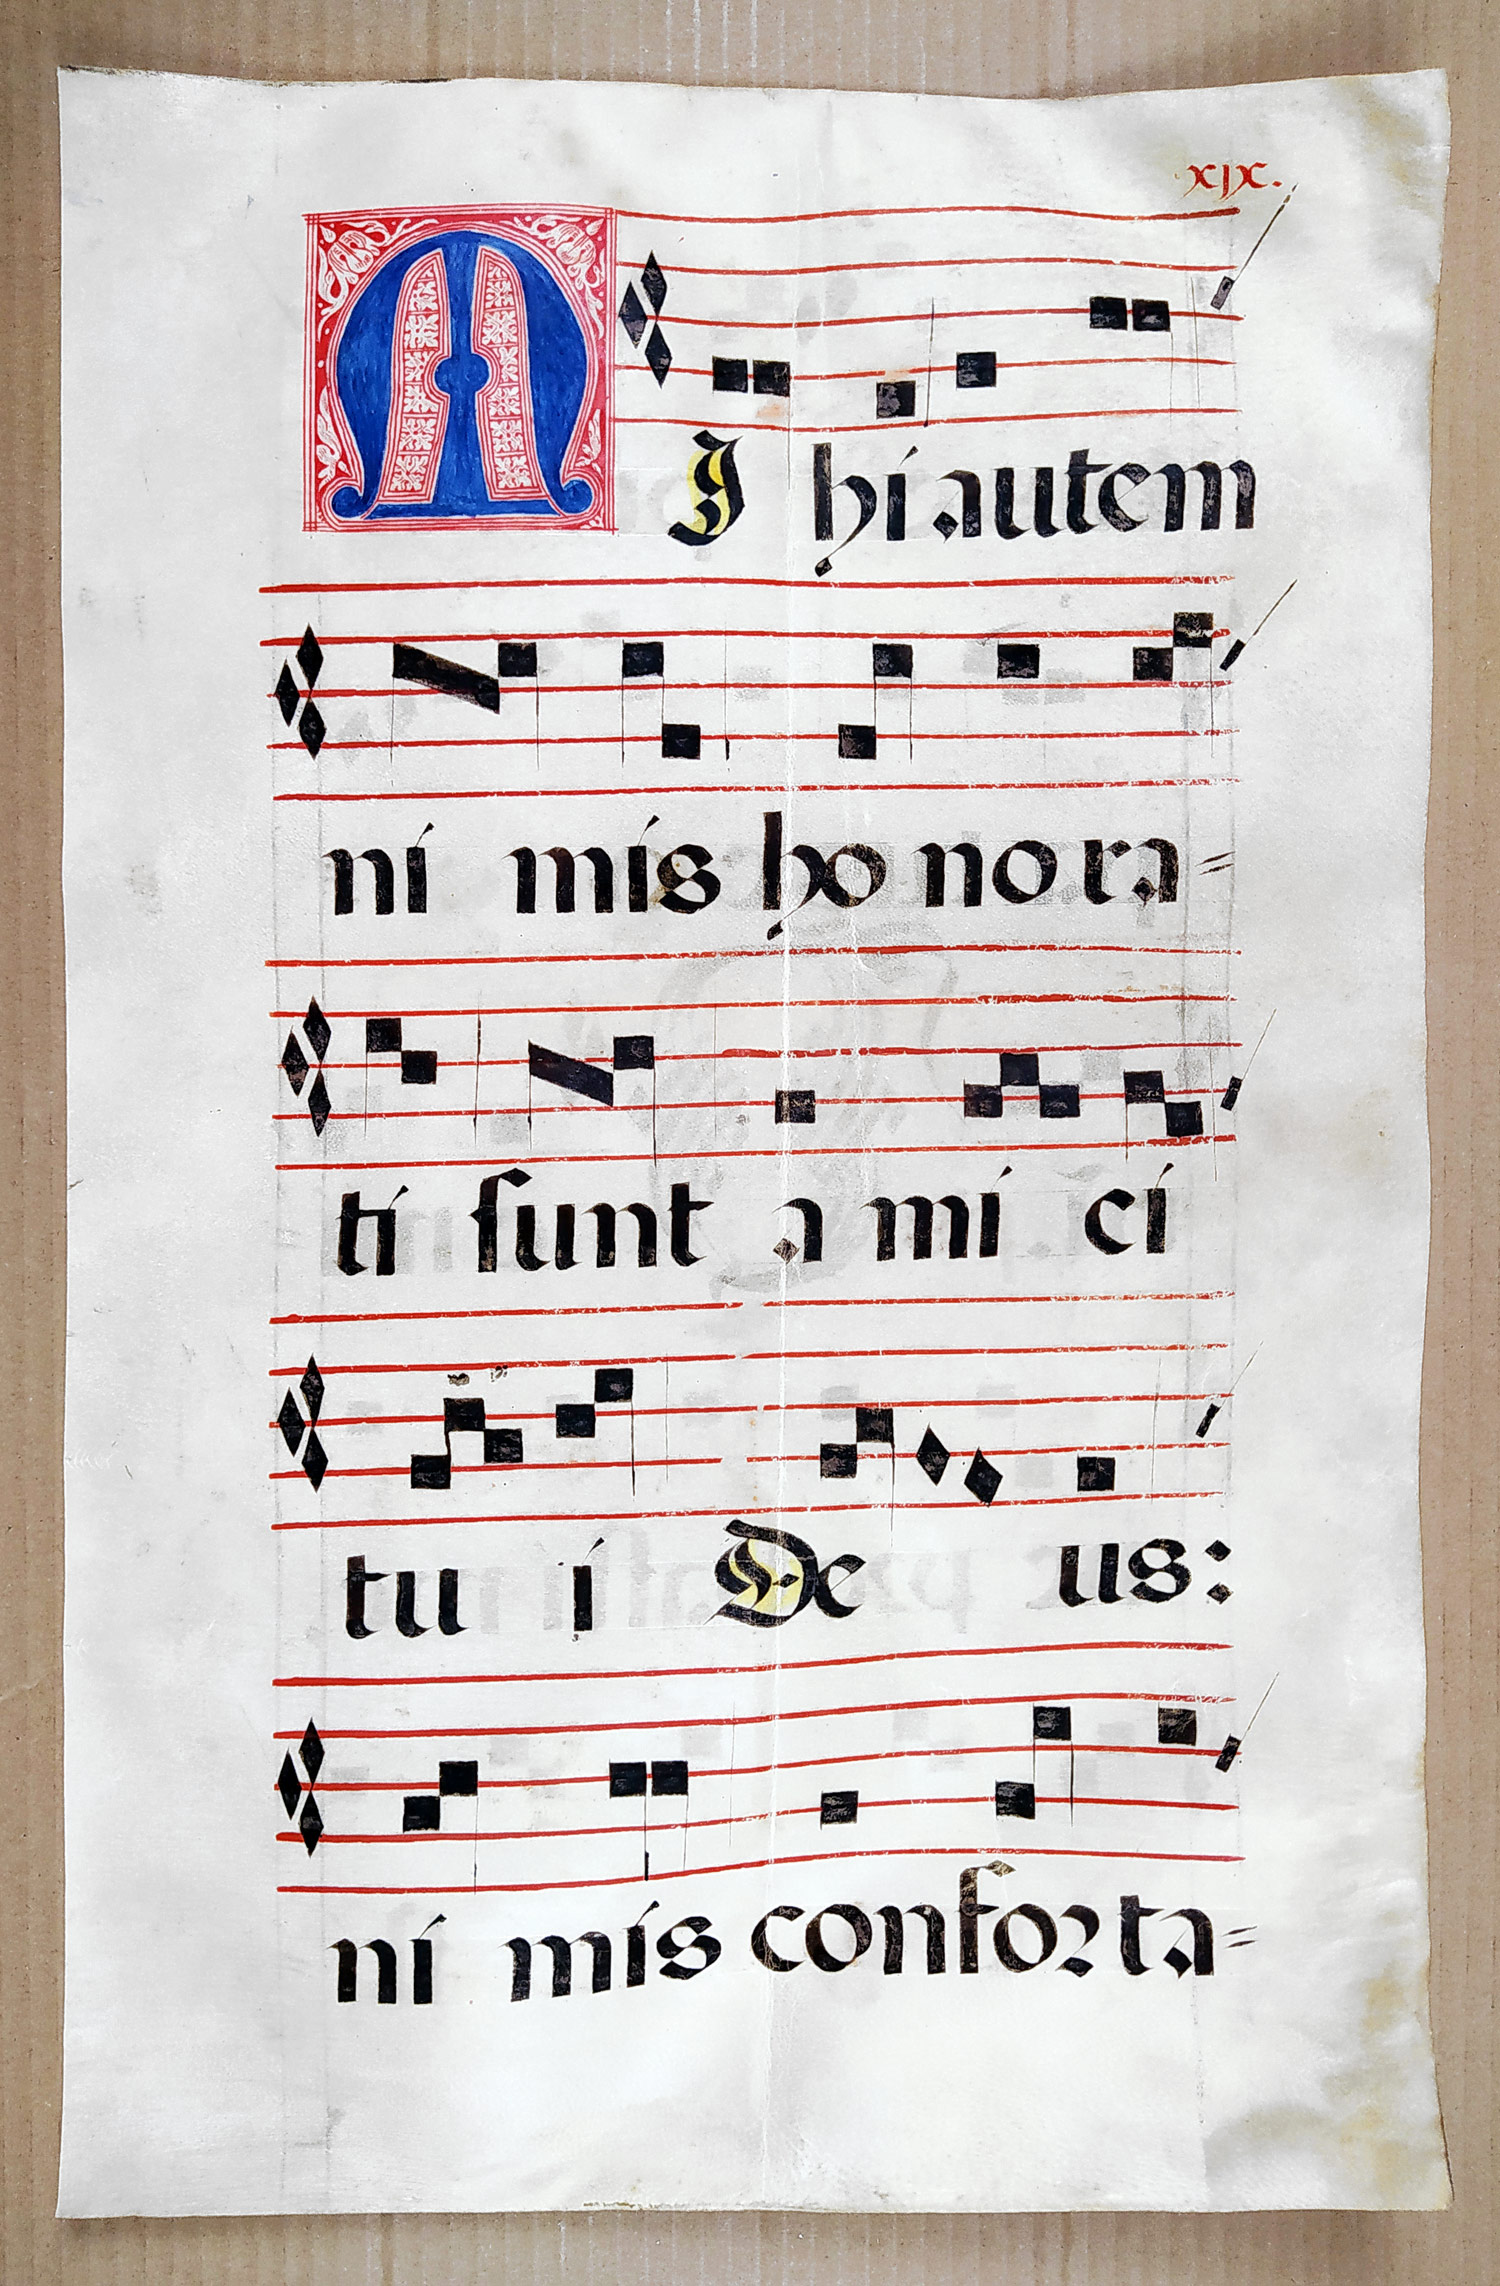 xjx.
MI hi autem
ni mis ho no ra=
ti sunt a mi ci
tu i De us:
ni mis confor ta=